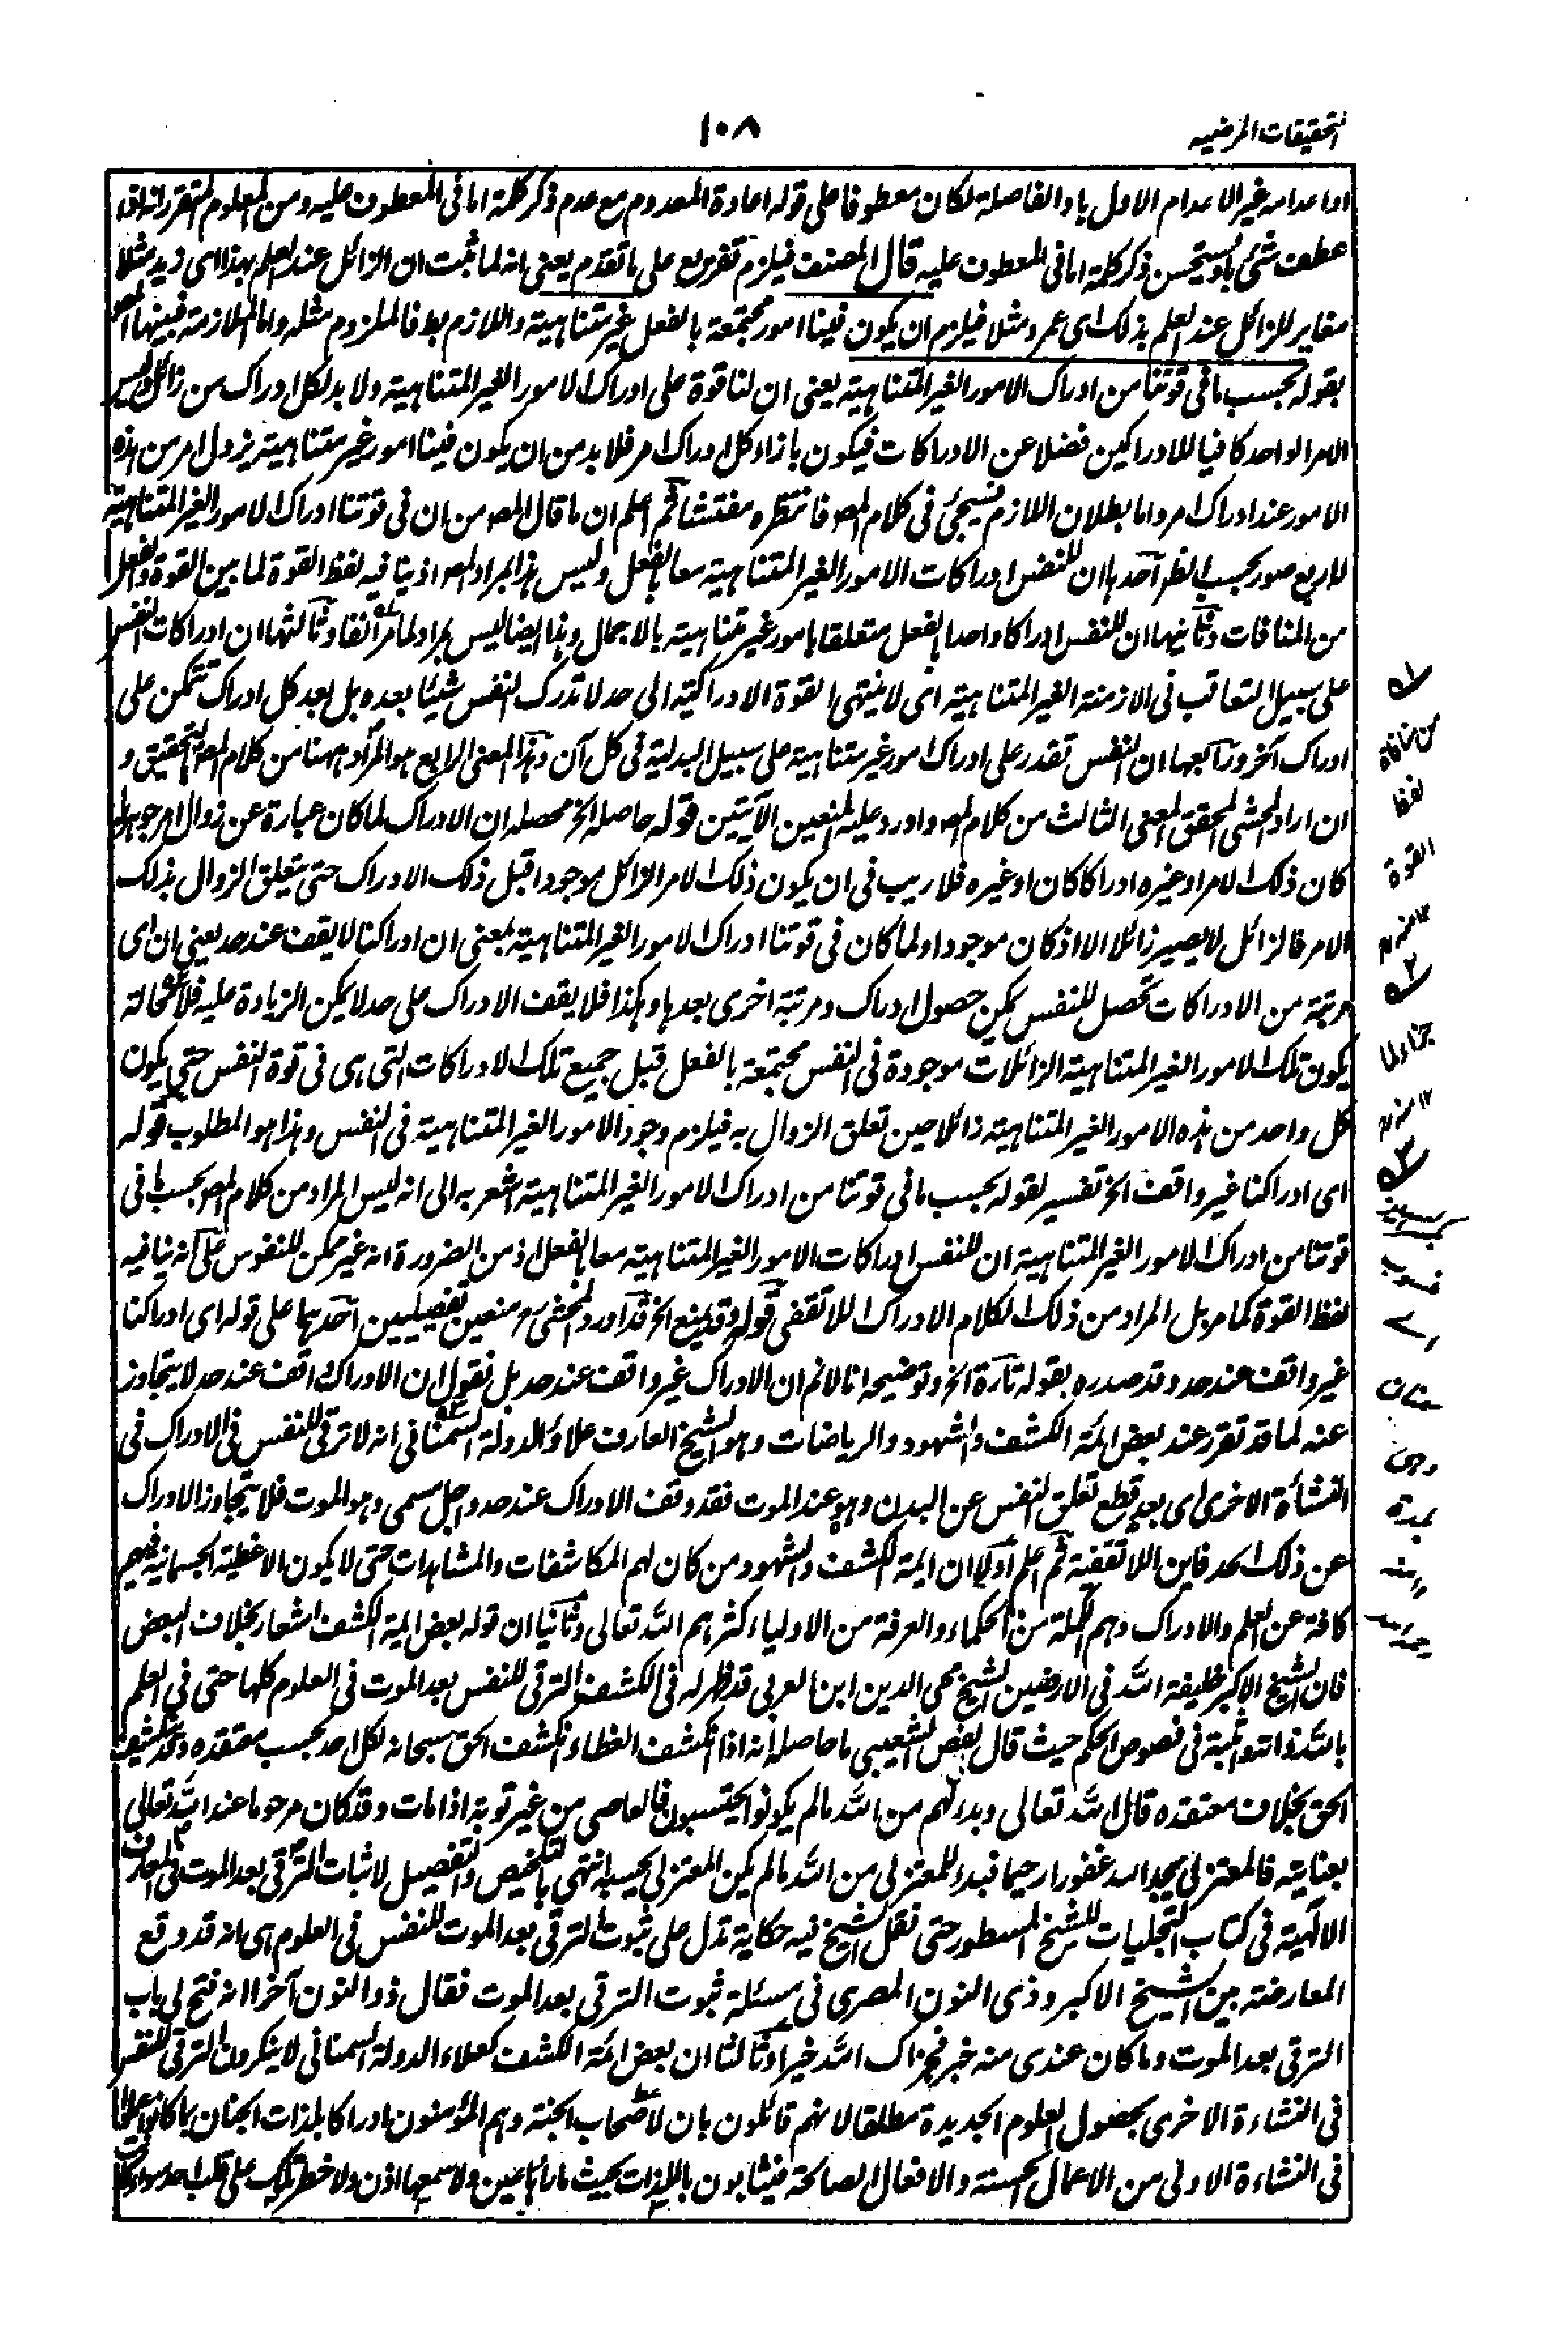 التحقيقات المرضيه
١٠٨
او اعدامه غير الاعدام الاول باو الفاصلة لكان معطوفا على قوله اعادة المعدوم مع عدم ذكر كلمة اما فى المعطوف عليه ومن المعلوم المتقرر انه اذا
عطف شئ باو يستحسن ذكر كلمة اما فى المعطوف عليه قال المصنف فيلزم تفريع على ما تقدم يعنى انه لما ثبت ان الزائل عند العلم بهذا اى زيد مثلا
مغاير للزائل عند العلم بذلك اى عمرو مثلا فيلزم ان يكون فينا امور مجتمعة بالفعل غير متناهية واللازم بط فالملزوم مثله واما الملازمة فبينها المصـ
بقوله بحسب ما فى قوتنا من ادراك الامور الغير المتناهية يعنى ان لنا قوة على ادراك الامور الغير المتناهية ولا بد لكل ادراك من زائل وليس
الامر الواحد كافيا للادراكين فضلا عن الادراكات فيكون بازاء كل ادراك امر فلا بد من ان يكون فينا امور غير متناهية يزول امر من هذه
الامور عند ادراك امر واما بطلان اللازم فسيجئ فى كلام المصـ فانتظره مفتشا ثم اعلم ان ما قال المصـ من ان فى قوتنا ادراك الامور الغير المتناهية
له اربع صور بحسب النظر آحدها ان للنفس ادراكات الامور الغير المتناهية معا بالفعل وليس هذا بمراد المصـ اذ ينافيه لفظ القوة لما بين القوة والفعل
من المنافات وثانيها ان للنفس ادراكا واحدا بالفعل متعلقا بامور غير متناهية بالاجمال وهذا ايضا ليس بمراد لما مر آنفا وثالثها ان ادراكات النفس
على سبيل التعاقب فى الازمنة الغير المتناهية اى لا ينتهى القوة الادراكية الى حد لا تدرك النفس شيئا بعده بل بعد كل ادراك تتمكن على
ادراك آخر ورابعها ان النفس تقدر على ادراك امور غير متناهية على سبيل البدلية فى كل آن وهذا المعنى الرابع هو المراد ههنا من كلام المصـ بالتحقيق و
ان اراد المحشى المحقق المعنى الثالث من كلام المصـ واورد عليه المنعين الآيتين قوله حاصله الخ محصله ان الادراك لما كان عبارة عن زوال امر موجود
كان ذلك الامر او غيره ادراكا كان او غيره فلا ريب فى ان يكون ذلك الامر الزائل موجودا قبل ذلك الادراك حتى يتعلق الزوال بذلك
الامر فالزائل لا يصير زائلا الا اذ كان موجودا ولما كان فى قوتنا ادراك الامور الغير المتناهية بمعنى ان ادراكنا لا يقف عند حد يعنى ان اى
مرتبة من الادراكات تحصل للنفس يمكن حصول ادراك ومرتبة اخرى بعدها وهكذا فلا يقف الادراك على حد لا يمكن الزيادة عليه فلا محالة
يكون تلك الامور الغير المتناهية الزائلات موجودة فى النفس مجتمعة بالفعل قبل جميع تلك الادراكات التى هى فى قوة النفس حتى يكون
كل واحد من هذه الامور الغير المتناهية زائلا حين تعلق الزوال به فيلزم وجود الامور الغير المتناهية فى النفس وهذا هو المطلوب قوله
اى ادراكنا غير واقف الخ تفسير لقوله بحسب ما فى قوتنا من ادراك الامور الغير المتناهية اشعر به الى انه ليس المراد من كلام المصـ بحسب ما فى
قوتنا من ادراك الامور الغير المتناهية ان للنفس ادراكات الامور الغير المتناهية معا بالفعل اذ من الضرورة انه غير ممكن للنفوس على انه ينافيه
لفظ القوة كما مر بل المراد من ذلك الكلام الادراك اللاتقفى قوله وقد يمنع الخ قد اورد المحشى رح منعين تفصيليين احدهما على قوله اى ادراكنا
غير واقف عند حد وقد صدره بقوله تارة الخ وتوضيحه انا لا نم ان الادراك غير واقف عند حد بل نقول ان الادراك واقف عند حد لا يتجاوز
عنه لما قد تقرر عند بعض ائمة الكشف والشهود والرياضات وهو الشيخ العارف علاؤ الدولة السمنانى انه لا ترقى للنفس فى الادراك فى
النشاءة الاخرى اى بعد قطع تعلق النفس عن البدن وهو عند الموت فقد وقف الادراك عند حد واجل مسمى وهو الموت فلا يتجاوز الادراك
عن ذلك الحد فاين اللاتقفية ثم اعلم اولا ان ايمة الكشف والشهود من كان لهم المكاشفات والمشاهدات حتى لا يكون الاغطية الجسمانية فيهم
كافة عن العلم والادراك وهم الكملة من الحكماء والعرفة من الاولياء كثرهم الله تعالى وثانيا ان قوله بعض ايمة الكشف اشعار بخلاف البعض
فان الشيخ الاكبر خليفة الله فى الارضين الشيخ محى الدين ابن العربى قد ظهر له فى الكشف الترقى للنفس بعد الموت فى العلوم كلها حتى فى العلم
بالله ذاته واثبته فى فصوص الحكم حيث قال بفص الشعيبى ما حاصله انه اذا انكشف الغطاء انكشف الحق سبحانه لكل احد بحسب معتقده وقد ينكشف
الحق بخلاف معتقده قال الله تعالى وبدا لهم من الله ما لم يكونوا يحتسبون فالعاصى من غير توبة اذا مات وقد كان مرحوما عند الله تعالى
بعنايته فالمعتزلى يجد الله غفورا رحيما فبدا للمعتزلى من الله ما لم يكن المعتزلى يحسبه انتهى بالتلخيص والتفصيل لاثبات الترقى بعد الموت فى المعارف
الالهية فى كتاب التجليات للشيخ المسطور حتى نقل الشيخ فيه حكاية تدل على ثبوت الترقى بعد الموت للنفس فى العلوم اى انه قد وقع
المعارضة بين الشيخ الاكبر وذى النون المصرى فى مسئلة ثبوت الترقى بعد الموت فقال ذو النون آخرا انه فتح لى باب
الترقى بعد الموت وما كان عندى منه خبر فجزاك الله خيرا وثالثا ان بعض ائمة الكشف كعلاء الدولة السمنانى لا ينكرون الترقى للنفس
فى النشاءة الاخرى بحصول العلوم الجديدة مطلقا لانهم قائلون بان لاصحاب الجنة وهم المؤمنون ادراكا بلذات الجنان بما كانوا
فى النشاءة الاولى من الاعمال الحسنة والافعال الصالحة فيثابون باللذات بحيث ما رأها عين ولا سمعها اذن ولا خطر تلك على قلب احد
١
من منافاة
لفظ
القوة
١٢ منه
٢
١٢ منه
٣